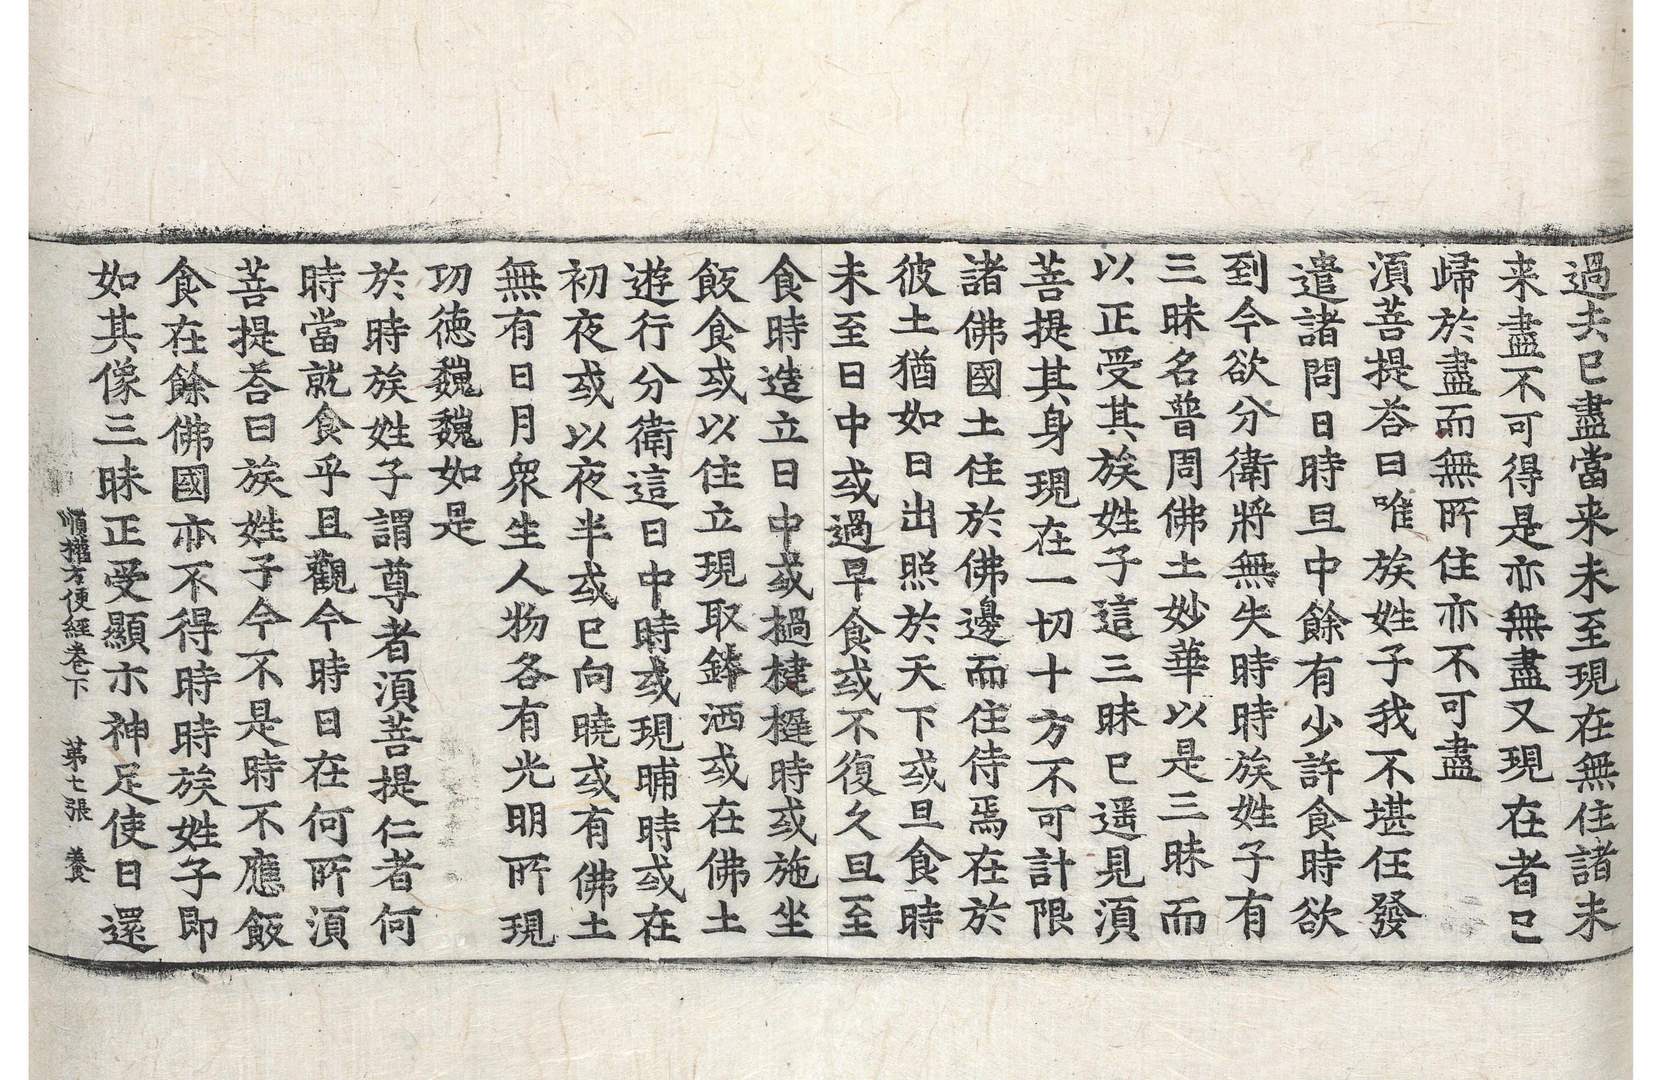 過去已盡當来未至現在無住諸未
来盡不可得是亦無盡又現在者已
歸於盡而無所住亦不可盡
湏菩提荅曰唯族姓子我不堪任發
遣諸問日時旦中餘有少許食時欲
到今欲分衛將無失時時族姓子有
三昧名普周佛土妙華以是三昧而
以正受其族姓子這三昧已遥見湏
菩提其身現在一切十方不可計限
諸佛國土住於佛邊而住侍焉在於
彼土猶如日出照於天下或旦食時
未至日中或過早食或不復久旦至
食時造立日中或撾揵搥時或施坐
飯食或以住立現取鉢洒或在佛土
遊行分衛這日中時或現晡時或在
初夜或以夜半或已向曉或有佛土
無有日月衆生人物各有光明所現
功徳巍巍如是
於時族姓子謂尊者湏菩提仁者何
時當就食乎且觀今時日在何所湏
菩提荅曰族姓子今不是時不應飯
食在餘佛國亦不得時時族姓子即
如其像三昧正受顯示神足使日還
順權方便經卷下　第七張　養